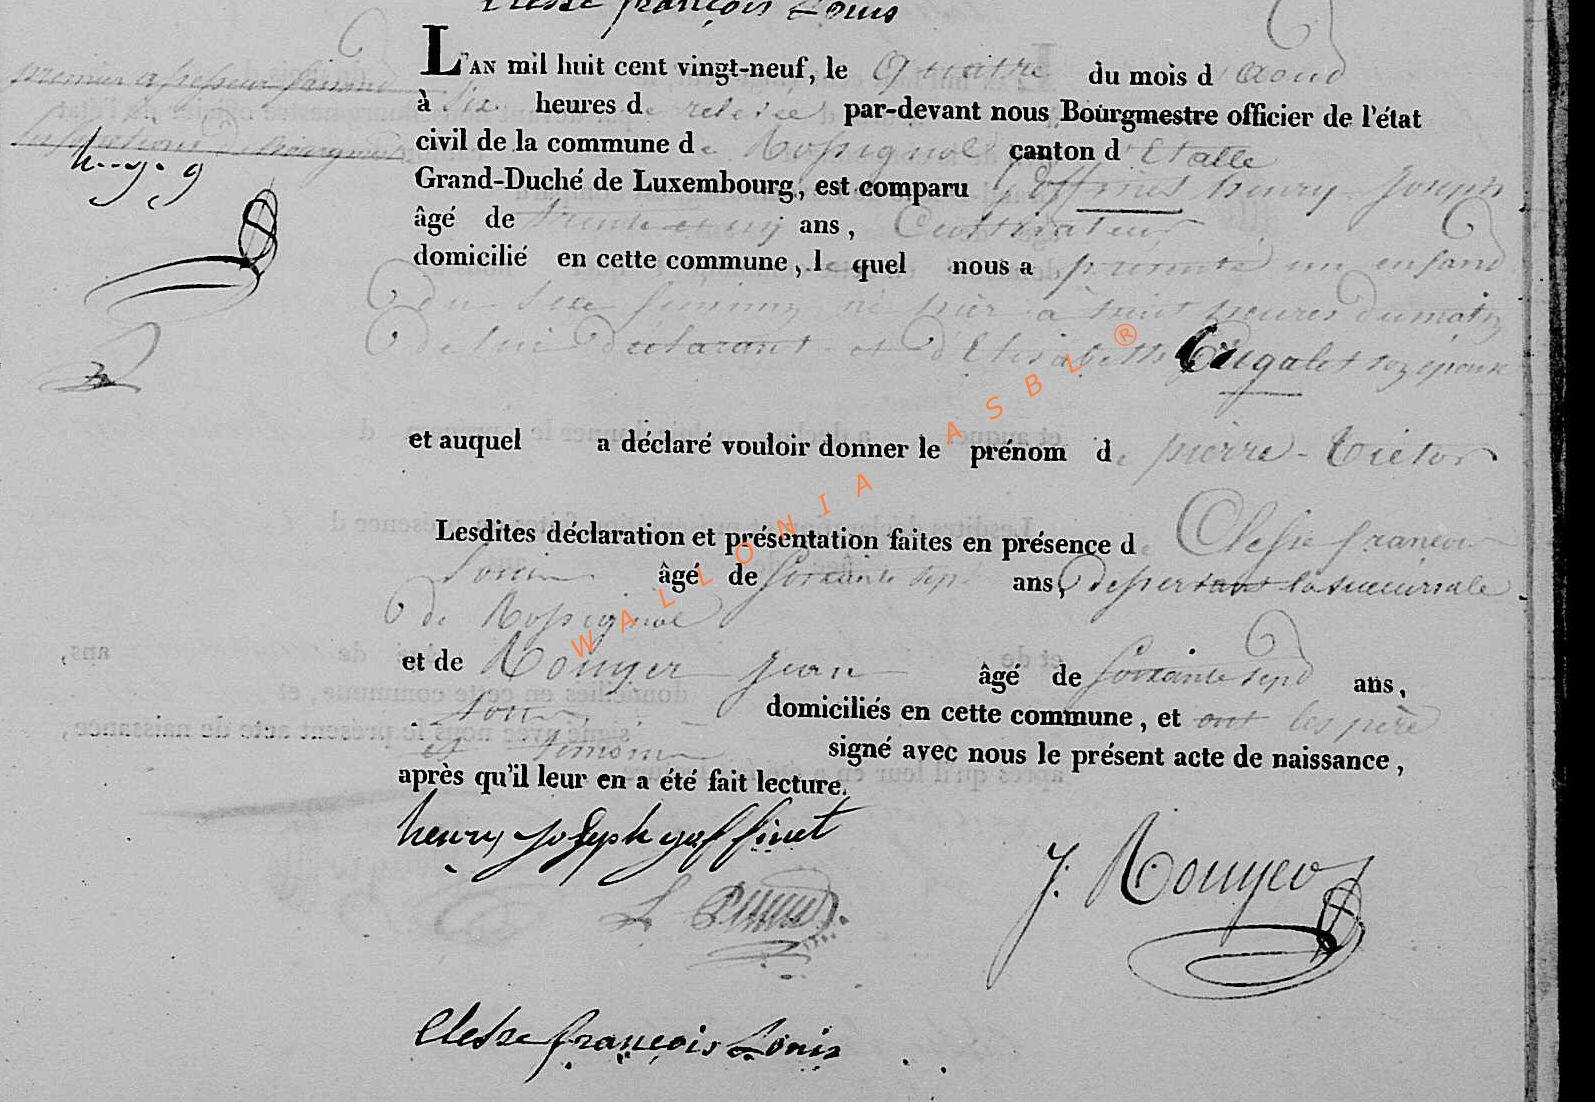 Clesse françois Louis
L'AN mil huit cent vingt-neuf, le quatre du mois d'aoud
premier assesseur faisant
à six heures de relevée par-devant nous Bourgmestre officier de l'état
les fonctions de Bourgmestre
civil de la commune de Rossignol canton d'Etalle
h. y. g
Grand-Duché de Luxembourg, est comparu Goffinet henry Joseph
âgé de trente et un ans, Cultivateur
domicilié en cette commune, lequel nous a présenté un enfand
du sexe féminin né hier à huit heures du matin
de lui déclarant et d'Elisabeth Gugalet son épouse
et auquel a déclaré vouloir donner le prénom de pierre-Victor
Lesdites déclaration et présentation faites en présence de Clesse francois
Louis âgé de soixante sept ans, dessertant la succursale
de Rossignol
et de Rouyer jean âgé de soixante sept ans,
domiciliés en cette commune, et ont les père
et témoins signé avec nous le présent acte de naissance,
après qu'il leur en a été fait lecture.
henry joseph goffinet
J. Rouyer
Clesse françois Louis
WALLONIA ASBL ®